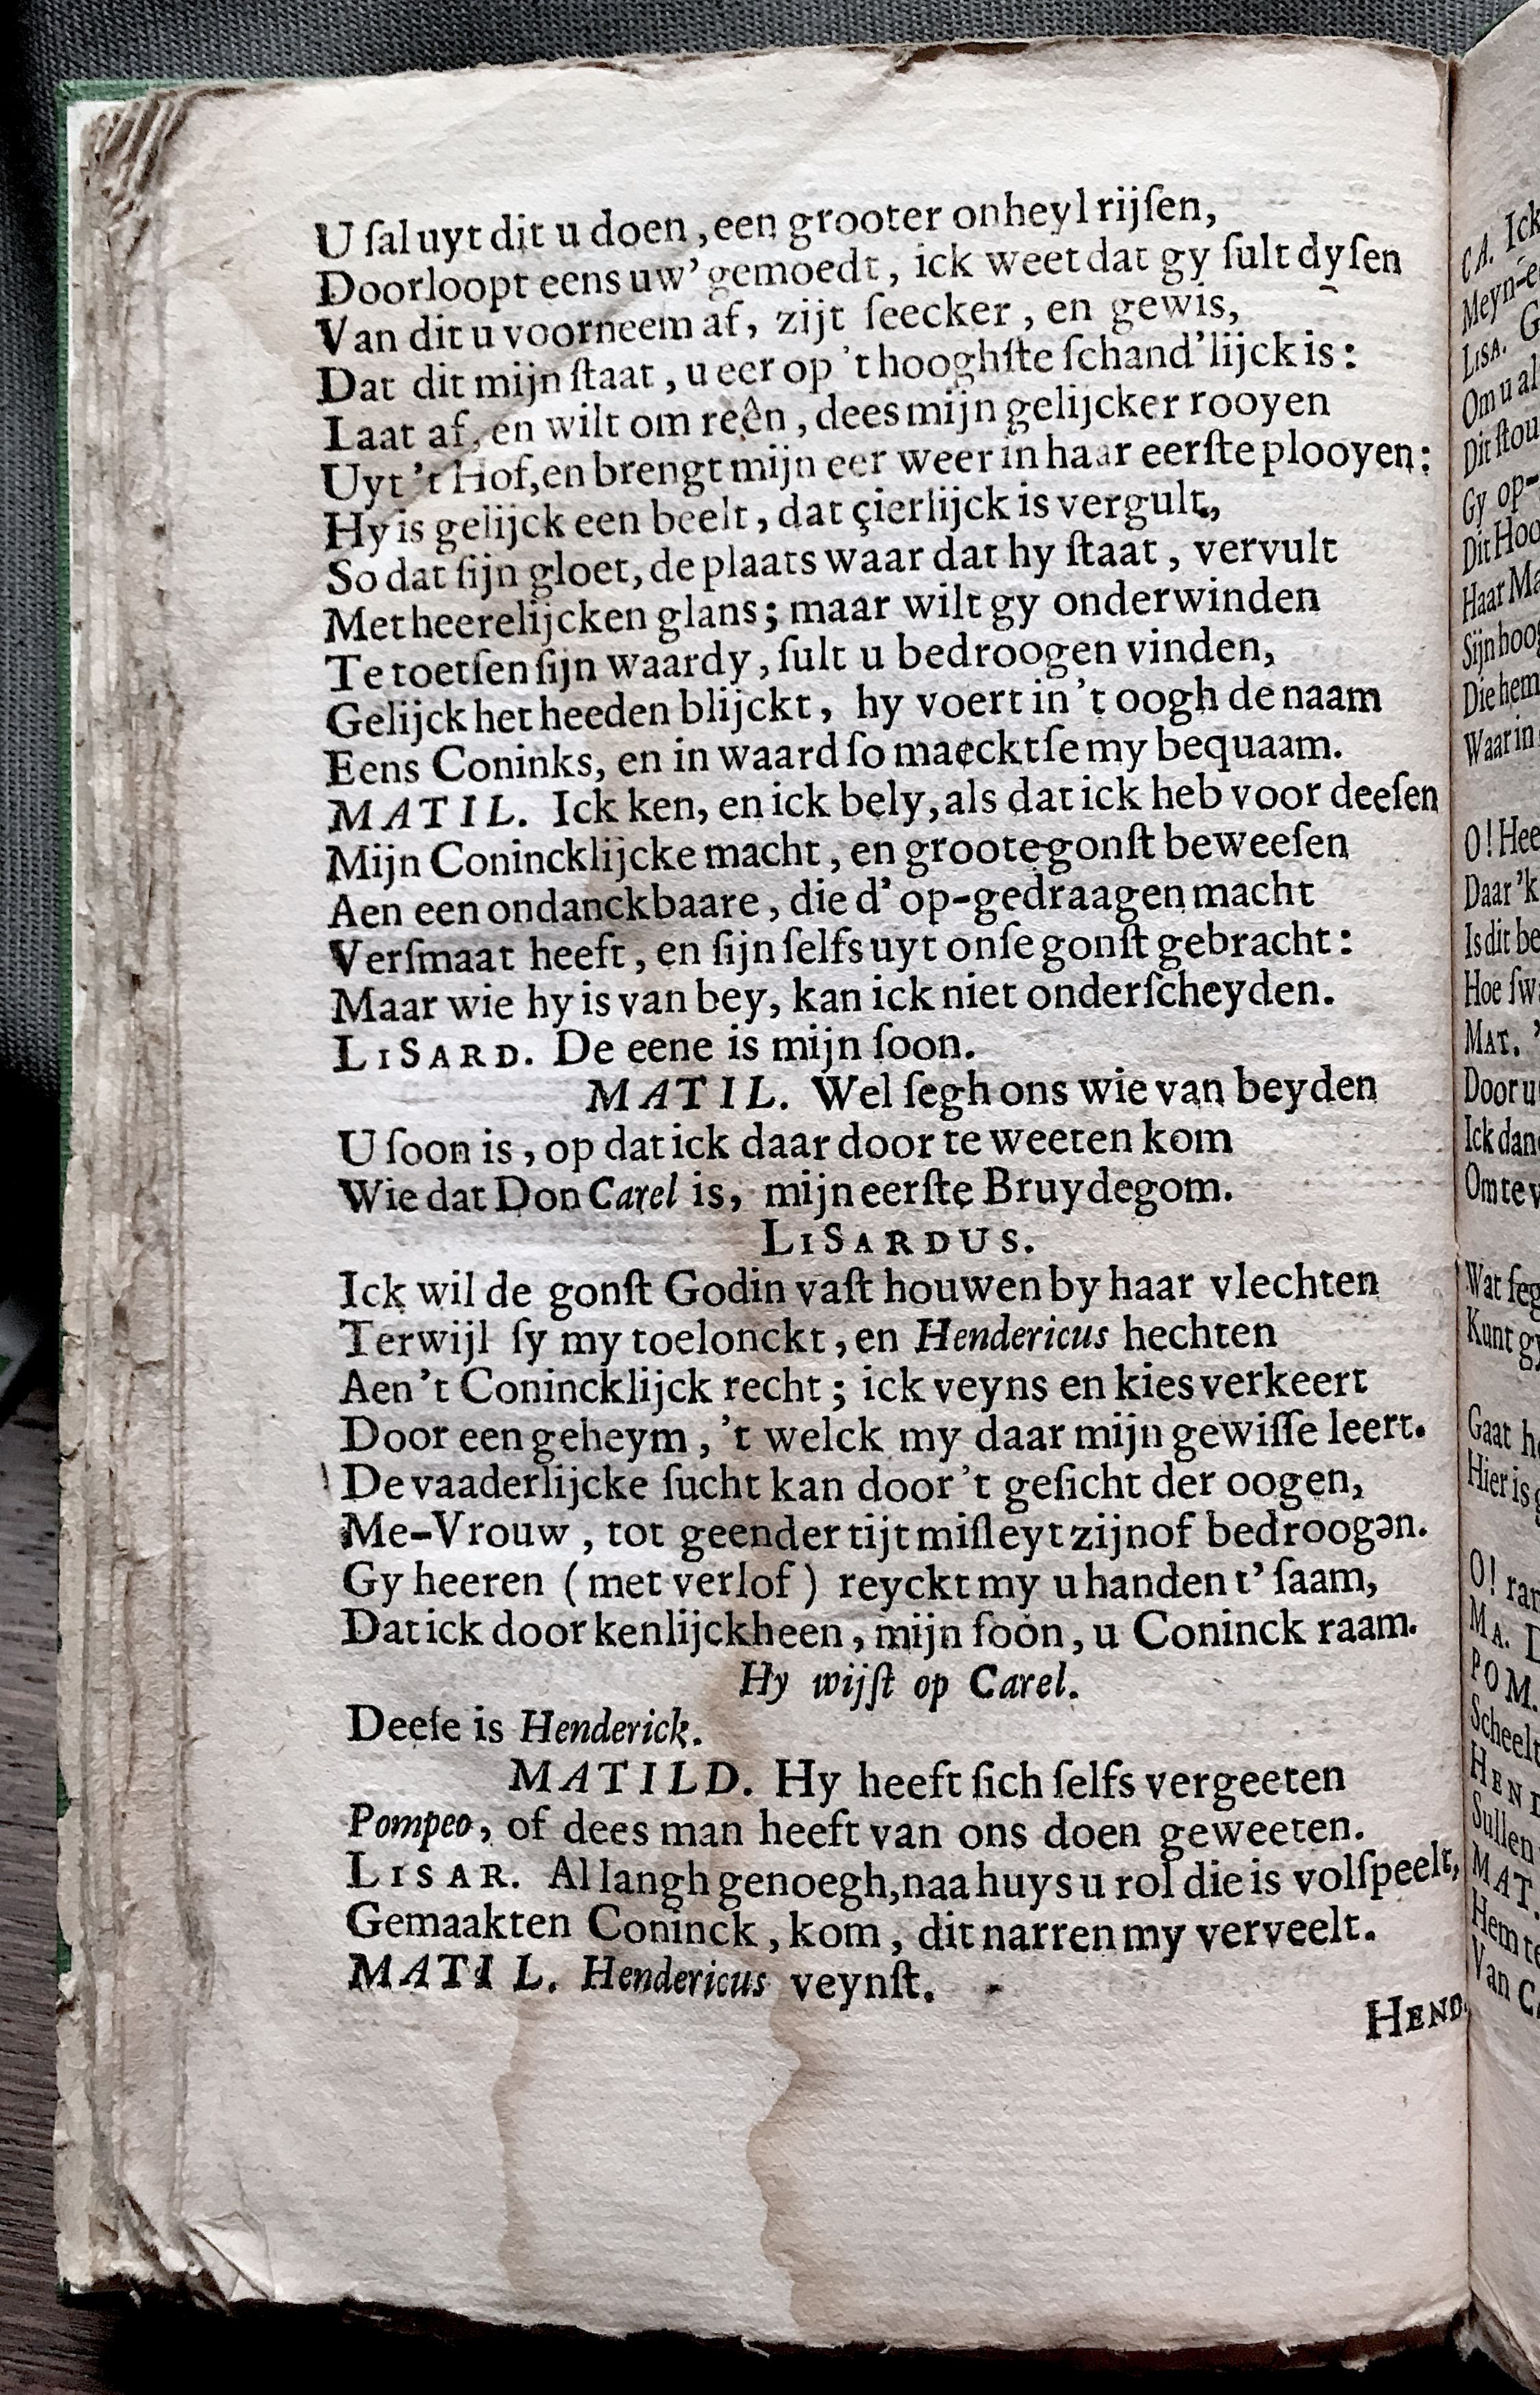 U ſal uyt dit u doen, een grooter onheyl rijſen,
Doorloopt eens uw' gemoedt, ick weet dat gy ſult dyſen
Van dit u voorneem af, zijt ſeecker, en gewis,
Dat dit mijn ſtaat, u eer op 't hooghſte ſchand'lijck is:
Laat af, en wilt om reên, dees mijn gelijcker rooyen
Uyt 't Hof, en brengt mijn eer weer in haar eerſte plooyen:
Hy is gelijck een beelt, dat çierlijck is vergult,
So dat ſijn gloet, de plaats waar dat hy ſtaat, vervult
Met heerelijcken glans; maar wilt gy onderwinden
Te toetſen ſijn waardy, ſult u bedroogen vinden,
Gelijck het heeden blijckt, hy voert in 't oogh de naam
Eens Coninks, en in waard ſo maeckt ſe my bequaam.
MATIL. Ick ken, en ick bely, als dat ick heb voor deeſen
Mijn Conincklijcke macht, en groote gonſt beweeſen
Aen een ondanckbaare, die d' op-gedraagen macht
Verſmaat heeft, en ſijn ſelfs uyt onſe gonſt gebracht:
Maar wie hy is van bey, kan ick niet onderſcheyden.
LISARD. De eene is mijn ſoon.
MATIL. Wel ſegh ons wie van beyden
U ſoon is, op dat ick daar door te weeten kom
Wie dat Don Carel is, mijn eerſte Bruydegom.
LISARDUS.
Ick wil de gonſt Godin vaſt houwen by haar vlechten
Terwijl ſy my toelonckt, en Hendericus hechten
Aen 't Conincklijck recht; ick veyns en kies verkeert
Door een geheym, 't welck my daar mijn gewiſſe leert.
De vaaderlijcke ſucht kan door 't geſicht der oogen,
Me-Vrouw, tot geender tijt miſleyt zijn of bedroogən.
Gy heeren (met verlof) reyckt my u handen t' ſaam,
Dat ick door kenlijckheen, mijn ſoon, u Coninck raam.
Hy wijſt op Carel.
Deeſe is Henderick.
MATILD. Hy heeft ſich ſelfs vergeeten
Pompeo, of dees man heeft van ons doen geweeten.
LISAR. Al langh genoegh, naa huys u rol die is volſpeelt,
Gemaakten Coninck, kom, dit narren my verveelt.
MATIL. Hendericus veynſt.
HEND.
CA. Ick
Meyn-e
LISA. G
Om u al
Dit ſtou
Gy op-
Dit Hoo
Haar Ma
Sijn hoog
Die hem
Waar in
O! Hee
Daar 'k
Is dit be
Hoe ſw
MAT. '
Door u
Ick dan
Om te v
Wat ſeg
Kunt gy
Gaat h
Hier is g
O! ran
MA. D
POM.
Scheelt
HEND
Sullen
MAT.
Hem te
Van C